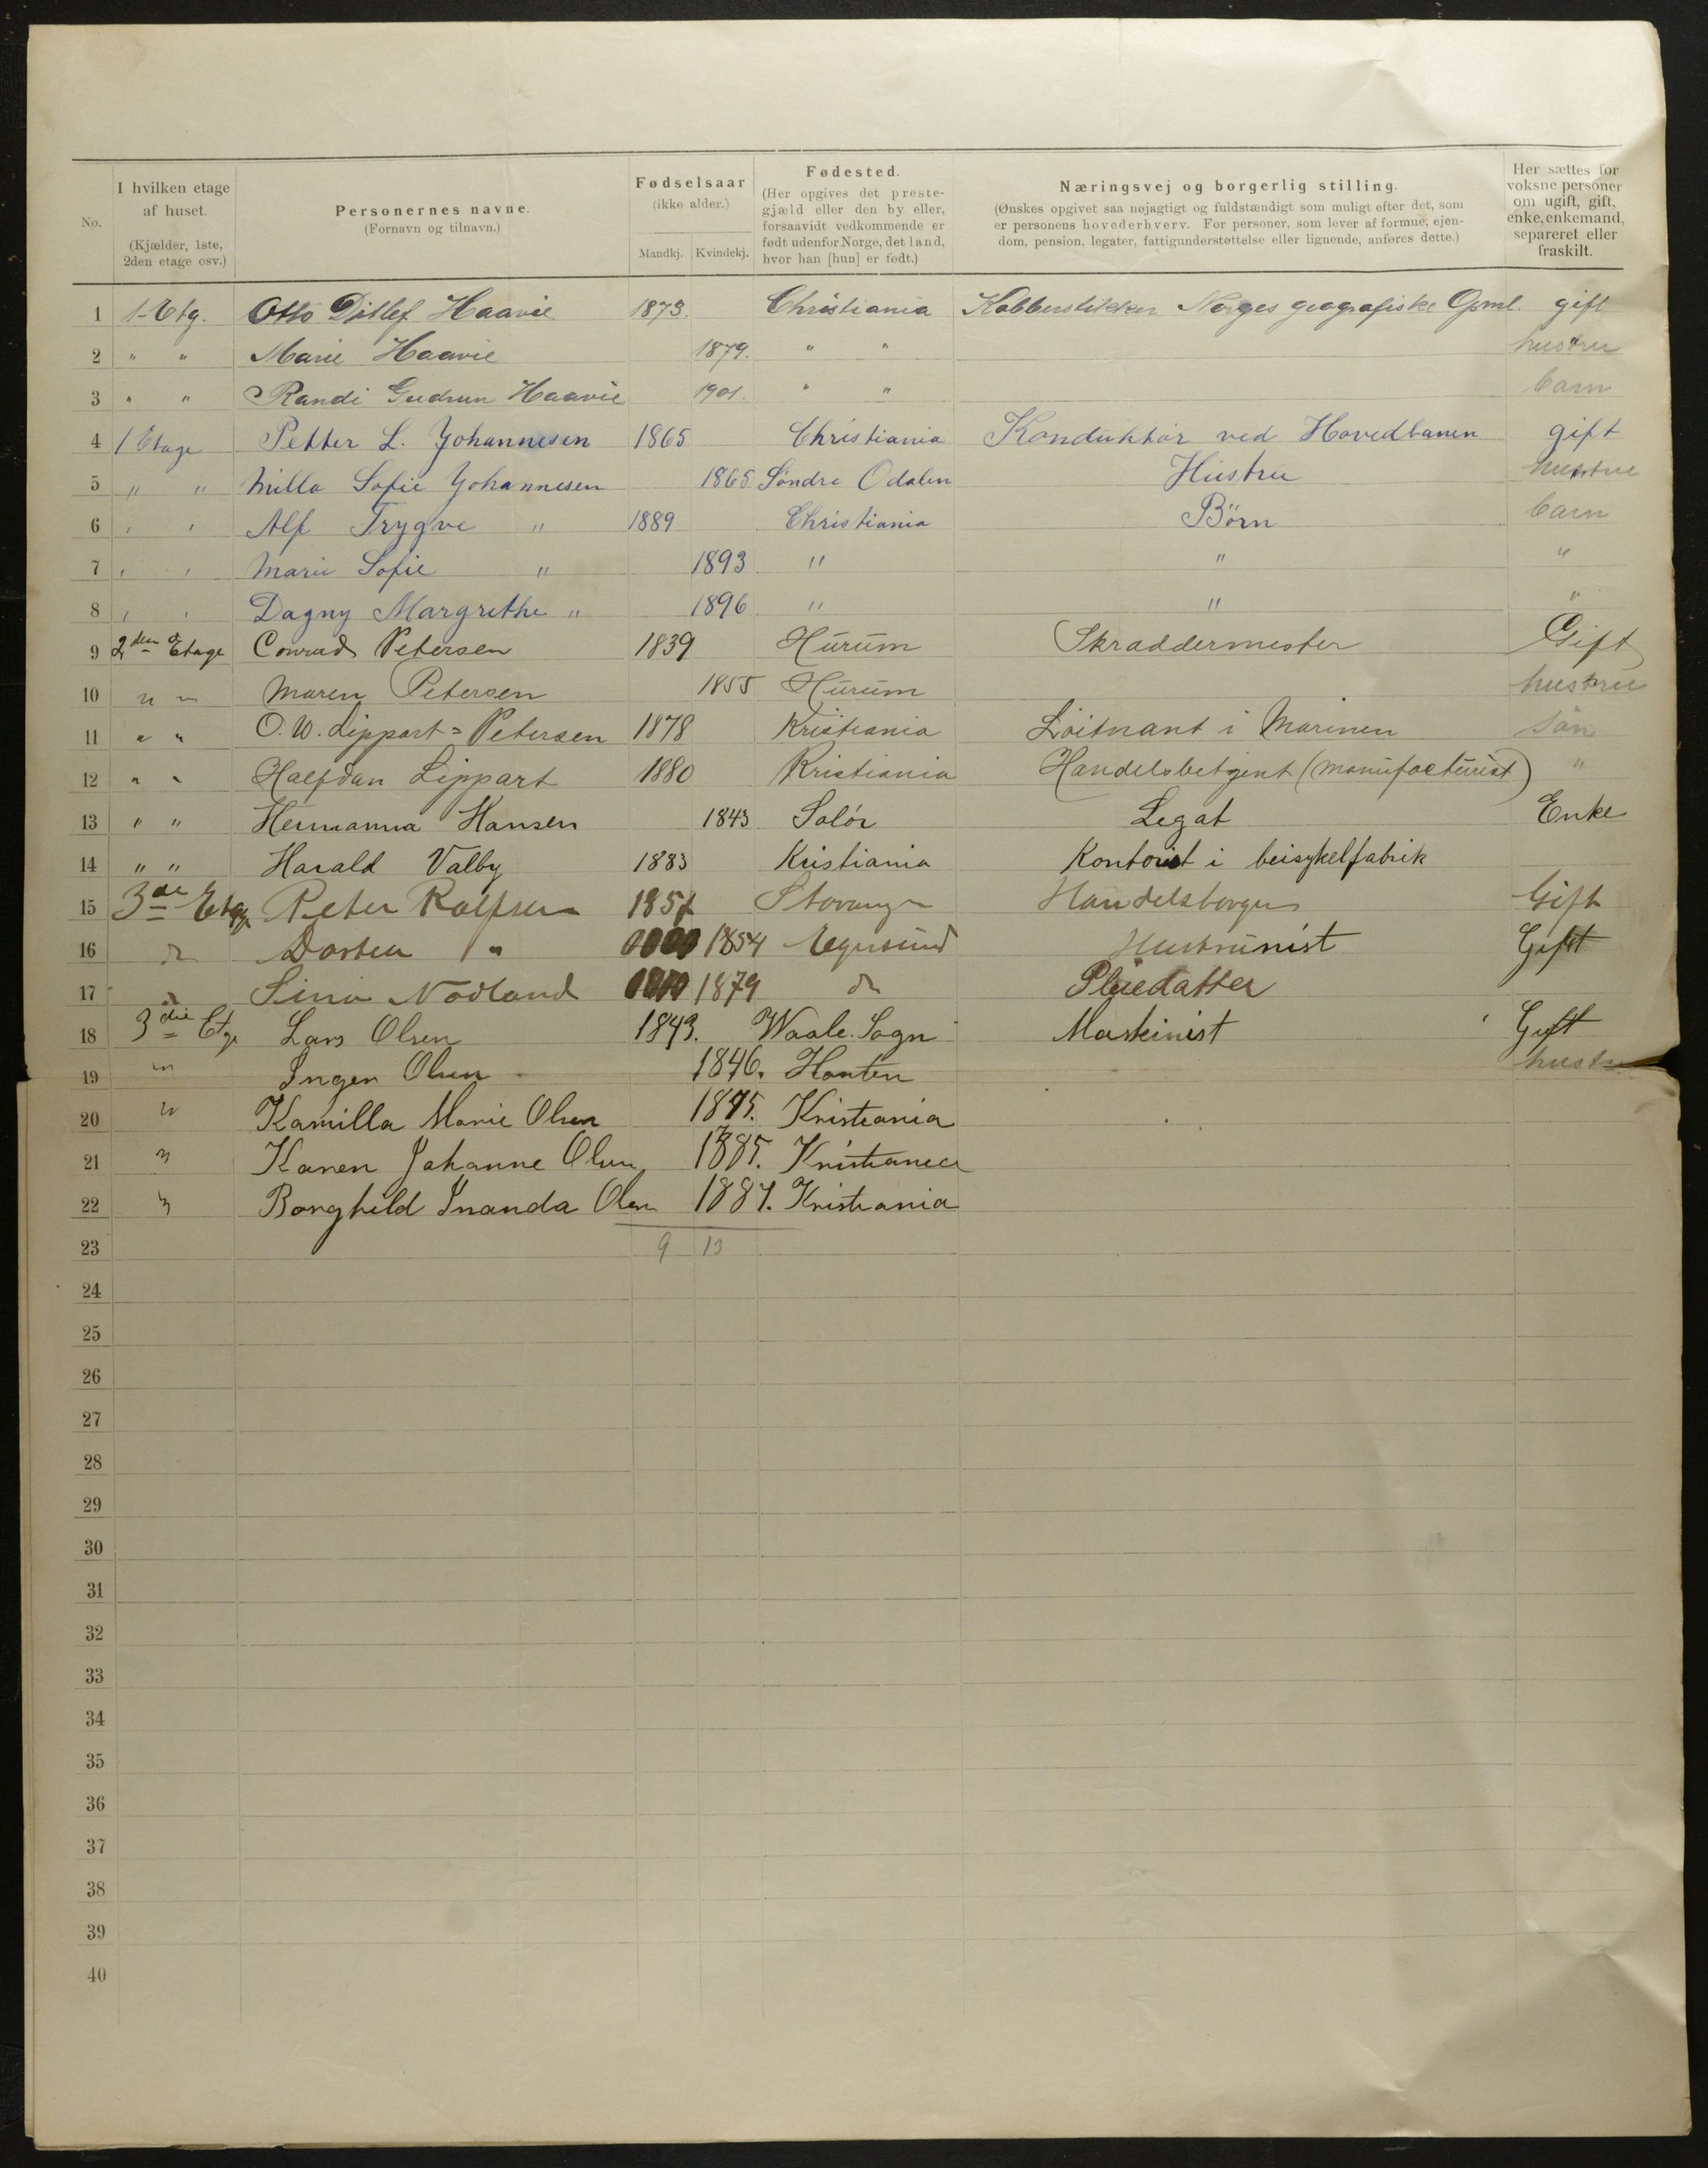 No. | I hvilken etage af huset. (Kjælder, 1ste, 2den etage osv.) | Personernes navne. (Fornavn og tilnavn.) | Fødselsaar (ikke alder.) Mandkj. Kvindekj. | Fødested. (Her opgives det prestegjæld eller den by eller, forsaavidt vedkommende er født udenfor Norge, det land, hvor han [hun] er født.) | Næringsvej og borgerlig stilling. (Ønskes opgivet saa nøjagtigt og fuldstændigt som muligt efter det, som er personens hovederhverv. For personer, som lever af formue, ejendom, pension, legater, fattigunderstøttelse eller lignende, anføres dette.) | Her sættes for voksne personer om ugift, gift, enke, enkemand, separeret eller fraskilt.
1 1-Etg. Otto Ditlef Haavie 1873. Christiania Kobberstikker Norges geografiske Opml. gift
2 " " Marie Haavie 1879. " " hustru
3 " " Randi Gudrun Haavie 1901. " " barn
4 1 Etage Petter L. Johannesen 1865 Christiania Konduktör ved Hovedbanen gift
5 " " Milla Sofie Johannesen 1865 Söndre Odalen Hustru hustru
6 " " Alf Trygve " 1889 Christiania Börn barn
7 " " Marie Sofie " 1893 " " "
8 " " Dagny Margrethe " 1896 " " "
9 2den Etage Conrad Petersen 1839 Hurum Skräddermester Gift
10 " " Maren Petersen 1855 Hurum hustru
11 " " O. W. Lippart=Petersen 1878 Kristiania Löitnant i Marinen sön
12 " " Halfdan Lippart 1880 Kristiania Handelsbetjent (manufacturist) "
13 " " Hermanna Hansen 1843 Solör Legat Enke
14 " " Harald Valby 1883 Kristiania Kontorist i beisykelfabrik
15 3de Etage Peter Rolfsen 1857 Stavanger Handelsborger Gift
16 do Dortea " 1854 Egersund Gift
17 do Sina Nodland 1879 do Pleiedatter
18 3die Etg Lars Olsen 1843. Waale Sogn Maskinist Gift
19 " Inger Olsen 1846. Hurten hustru
20 " Kamilla Marie Olsen 1875. Kristiania
21 " Karen Johanne Olsen 1885. Kristiania
22 " Borghild Inanda Olsen 1887. Kristiania
23 9 13
24
25
26
27
28
29
30
31
32
33
34
35
36
37
38
39
40